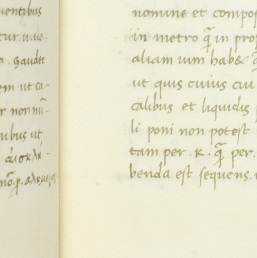 uentibus
tur. u. ue
. gaudet
em ut ca
r non nu
ibus ut
nomine et compo
in metro q̄ in pro
aliam uim habet
ut quis cuius cui
calibus et liquidis
li poni non potest
tam per k. q̄ per.
benda est sequens